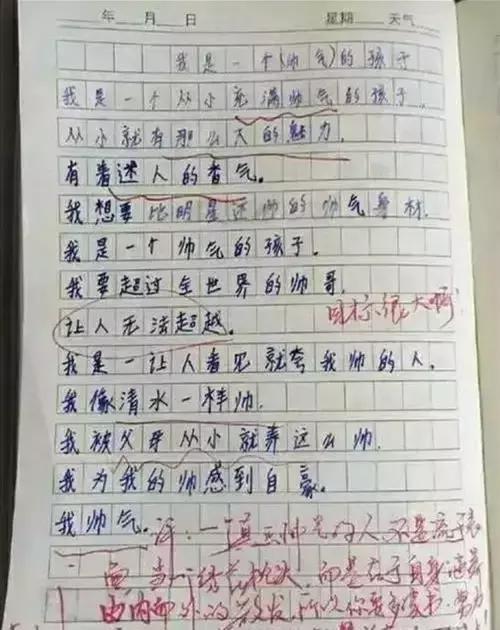 年 月 日 星期 天气
我是一个(帅气)的孩子
我是一个从小充满帅气的孩子.
从小就有那么大的魅力.
有着迷人的香气。
我想要比明星还帅的帅气身材.
我是一个帅气的孩子.
我要超过全世界的帅哥.
让人无法超越。
目标很大啊!
我是一让人看见就夸我帅的人.
我像清水一样帅.
我被父母从小就养这么帅.
我为我的帅感到自豪。
我帅气。
评:一个真正帅气的人不是流于表
面 当一绣花枕头,而是在于自身
由内而外的 所以你要多读书,努力